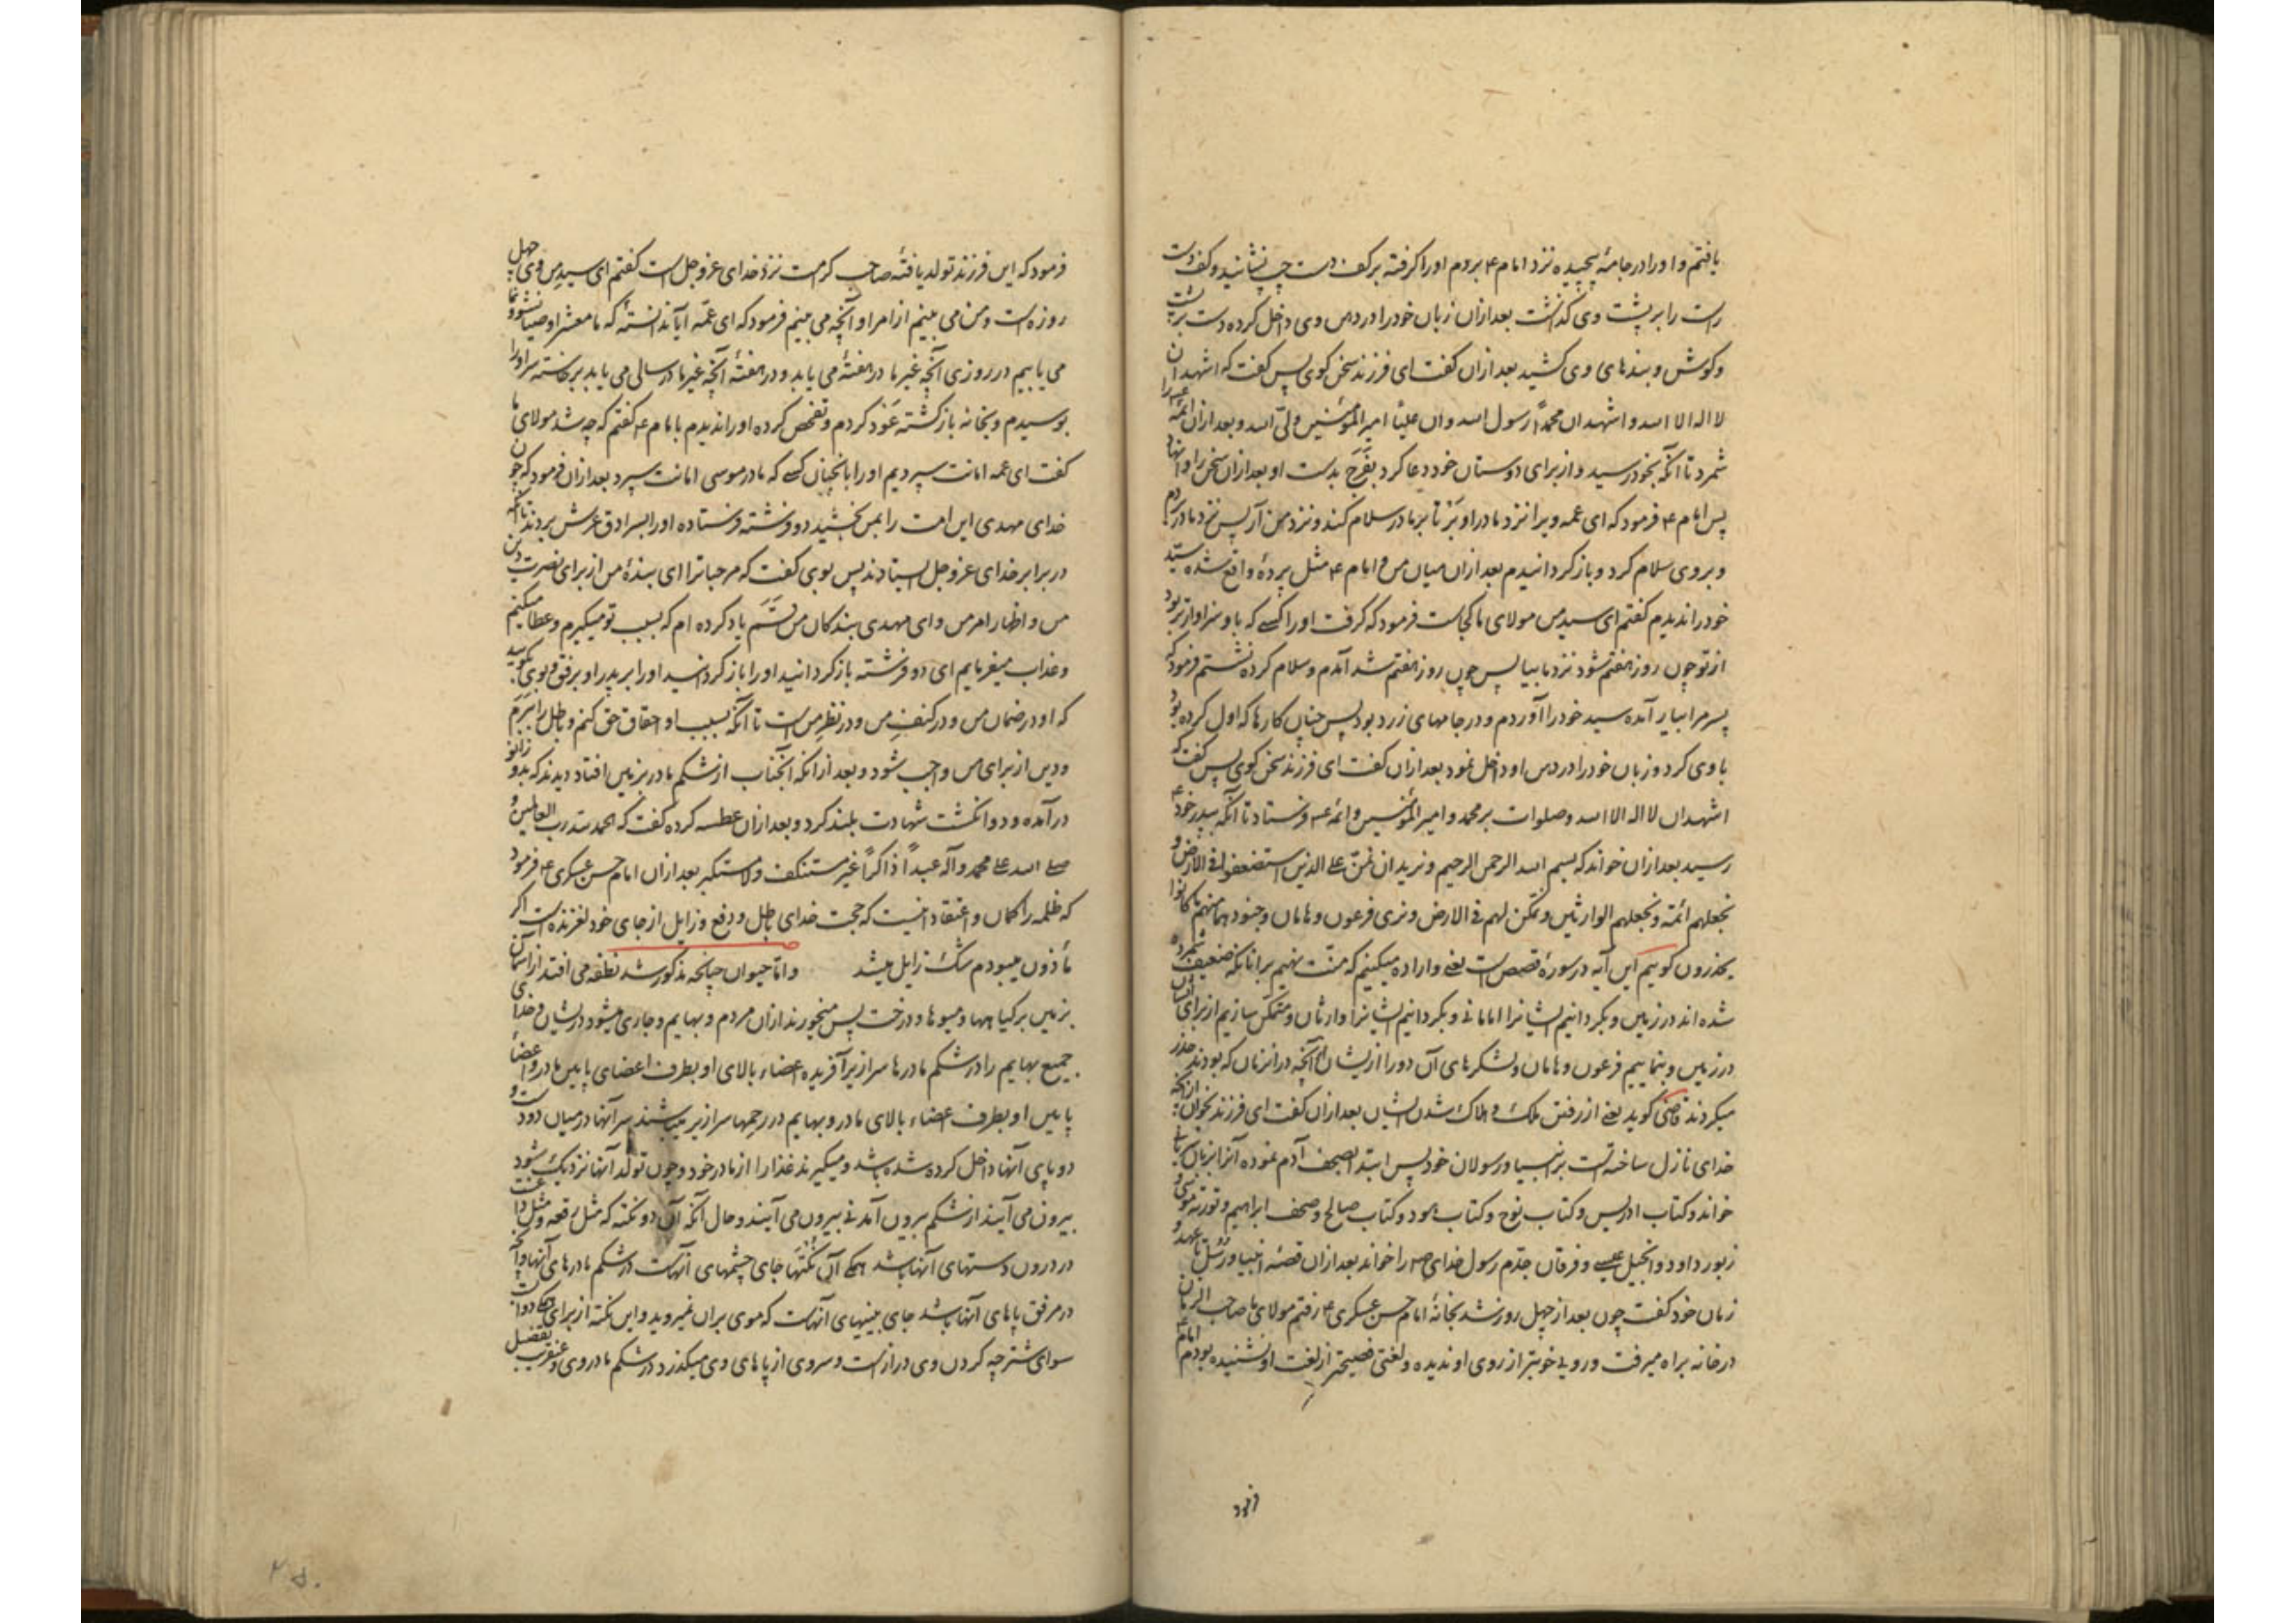 یافتم و او را در جامهٔ پیچیده نزد امام ۴ بردم او را گرفته بر کف دست چپ نشانید و کف دست
راست را بر پشت وی گذاشت بعد ازان زبان خود را در دهن وی داخل کرده دست بر پشت
و کوش و بندهای وی کشید بعد ازان گفت ای فرزند سخن کوی پس گفت که اشهد ان
لا اله الا الله و اشهد ان محمدًا رسول الله و ان علیًا امیر المؤمنین ولیّ الله و بعد ازان ائمّه را
شمرد تا آنکه بخود رسید و از برای دوستان خود دعا کرد بفَرَج بدست او بعد ازان سخن را
پس امام ۴ فرمود که ای عمه ویرا نزد مادر او بَر تا بر مادر سلام کند و نزد من آر پس نزد مادر بردم
و بر وی سلام کرد و باز گردانیدم بعد ازان میان من و امام ۴ مثل پردهٔ واقع شده سیّد
خود را ندیدم گفتم ای سید من مولای ما کجاست فرمود که گرفت او را کسی که باو سزاوارتر بود
از تو چون روز هفتم شود نزد ما بیا پس چون روز هفتم شد آمدم و سلام کرده نشستم فرمود که
پسر مرا بیار آمده سید خود را آوردم و در جامهای زرد بود پس چنان کارها که اول کرده بود
با وی کرد و زبان خود را در دهن او داخل نمود بعد ازان گفت ای فرزند سخن کوی پس گفت که
اشهد ان لا اله الا الله و صلوات بر محمد و امیر المؤمنین و ائمه ۴ فرستاد تا آنکه بپدر خود ۴
رسید بعد ازان خواند که بسم الله الرحمن الرحیم و نرید ان نمنّ علی الذین استضعفوا فی الارض و
نجعلهم ائمّة و نجعلهم الوارثین و نمکّن لهم فی الارض و نری فرعون و هامان و جنودهما منهم ما کانوا
یحذرون کوییم این آیه در سورهٔ قصص است یعنی و اراده میکنیم که منّت نهیم بر انانکه ضعیف شمرده
شده اند در زمین و بگردانیم ایشانرا امامانی و بگردانیم ایشانرا وارثان و متمکّن سازیم از برای ایشان
در زمین و بنماییم فرعون و هامان و لشکرهای آن دو را از ایشان آنچه در انزمان که بودند حذر
میکردند قاضی کوید یعنی از رفتن ملک و هلاک شدن ایشان بعد ازان گفت ای فرزند بخوان از آنچه
خدای نازل ساخته است بر انبیا و رسولان خود پس ابتدا بصحف آدم نموده آنرا بزبان سریانی
خواند و کتاب ادریس و کتاب نوح و کتاب هود و کتاب صالح و صحف ابراهیم و توریة موسی و
زبور داود و انجیل عیسی و فرقان جدّم رسول خدای ص را خواند بعد ازان قصهٔ انبیا و رُسُل تا عهد
زمان خود گفت چون بعد از چهل روز شد بخانهٔ امام حسن عسکری ۴ رفتم مولای ما صاحب الزمان
در خانه براه میرفت و رویی خوبتر از روی او ندیده و لغتی فصیحتر از لغت او نشنیده بودم امام ۴
فرمود
فرمود که این فرزند تولد یافتهٔ صاحب کرامت نزد خدای عز و جل است گفتم ای سید من وی چهل
روزه است و من می بینم از امر او آنچه می بینم فرمود که ای عمّه آیا ندانستهٔ که ما معشر اوصیا نشو و نما
می یابیم در روزی آنچه غیر ما در هفتهٔ می یابد و در هفتهٔ آنچه غیر ما در سالی می یابد برخاسته سر او را
بوسیدم و بخانه باز گشته عَود کردم و تفحص کرده او را ندیدم با امام ۴ گفتم که چه شد مولای ما
گفت ای عمه امانت سپردیم او را بانچنان کسی که مادر موسی امانت سپرد بعد ازان فرمود که چون
خدای مهدی این امت را بمن بخشید دو فرشته فرستاده او را بسرادق عرش بردند تا آنکه
در برابر خدای عز و جل ایستادند پس بوی گفت که مرحبا ترا ای بندهٔ من از برای نصرت دین
من و اظهار امر من و ای مهدی بندکان من قسَم یاد کرده ام که بسبب تو میگیرم و عطا میکنم
و عذاب میفرمایم ای دو فرشته باز گردانید او را باز گردانید او را بر پدر او برفق و بوی بگویید
که او در ضمان من و در کنفِ من و در نظرِ من است تا آنکه بسبب او احقاق حق کنم و باطل را
و دین از برای من واجب شود و بعد از انکه آنجناب از شکم مادر بزمین افتاد دیدند که بدو زانو
در آمده و دو انگشت شهادت بلند کرد و بعد ازان عطسه کرده گفت که الحمد لله رب العالمین و
صلی الله علی محمد و آله عبدًا ذاکرًا غیر مستنکف و لا مستکبر بعد ازان امام حسن عسکری ۴ فرمود
که ظلمه را کمان و اعتقاد اینست که حجت خدای باطل و دفع و زایل از جای خود لغزنده است اکر
مأذون میبودم شک زایل میشد و امّا حیوان چنانچه مذکور شد نطفه می افتد از آسمان
بزمین بر گیاهها و میوها و درخت پس میخورند ازان مردم و بهایم و جاری میشود در ایشان و خدای
جمیع بهایم را در شکم مادرها سرازیر آفریده اعضاء بالای او بطرف اعضای پایین مادر و اعضاء
پایین او بطرف اعضاء بالای مادر و بهایم در رحمها سرازیر میباشند سر آنها در میان دو دست و
دو پای آنها داخل کرده شده باشد و میگیرند غذا را از مادر خود و چون تولد آنها نزدیک شود
بیرون می آیند از شکم بیرون آمدنی بیرون می آیند و حال آنکه آن دو نکته که مثل رقعه و مثل داغست
در درون دستهای آنها باشد همگی آن نکتها جای چشمهای آنهاست در شکم مادرهای آنها و آنچه
در مرفق پاهای آنها باشد جای بینیهای آنهاست که موی بران نمیروید و این نکته از برای همگی دوابست
سوای شتر چه کردن وی درازست و سر وی از پاهای وی میگذرد در شکم مادر وی و عنقریب بتفصیل